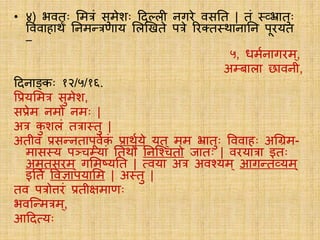 • ४) भवतः मित्रं सुमेशः दिल्ली नगरे वसति | तं स्वभ्रातुः
विवाहार्थं निमन्त्रणाय लिखिते पत्रे रिक्तस्थानानि पूरयत
–
५, धर्मनागरम्,
अम्बाला छावनी,
दिनाङ्कः १२/५/१६.
प्रियमित्र सुमेश,
सप्रेम नमो नमः |
अत्र कुशलं तत्रास्तु |
अतीव प्रसन्नतापूर्वकं प्रार्थये यत् मम भ्रातुः विवाहः अग्रिम-
मासस्य पञ्चम्यां तिथौ निश्चितो जातः | वरयात्रा इतः
अमृतसरम् गमिष्यति | त्वया अत्र अवश्यम् आगन्तव्यम्
इति विज्ञापयामि | अस्तु |
तव पत्रोत्तरं प्रतीक्षमाणः
भवन्मित्रम्,
आदित्यः